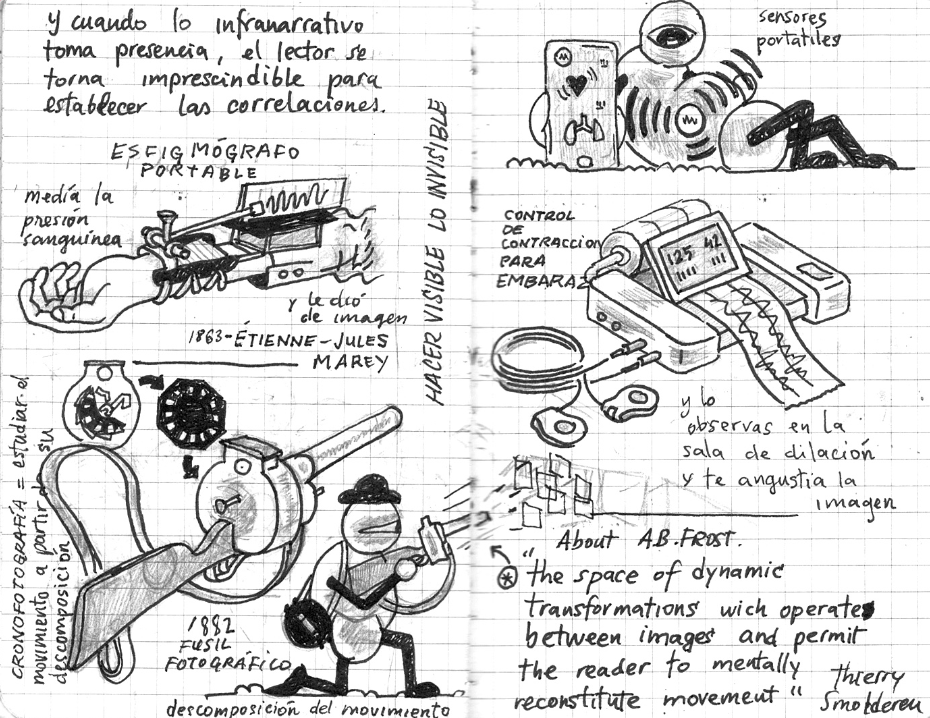 y cuando lo infranarrativo
toma presencia, el lector se
torna imprescindible para
establecer las correlaciones.
ESFIGMÓGRAFO
PORTABLE
medía la
presión
sanguínea
y le dió
de imagen
1863-ÉTIENNE-JULES
MAREY
CRONOFOTOGRAFÍA = estudiar el
movimiento a partir de su
descomposición
1882
FUSIL
FOTOGRÁFICO
descomposición del movimiento
HACER VISIBLE LO INVISIBLE
sensores
portatiles
CONTROL
DE
CONTRACCION
PARA
EMBARAZ
125 42
y lo
observas en la
sala de dilación
y te angustia la
imagen
About A.B. FROST.
"the space of dynamic
transformations wich operates
between images and permit
the reader to mentally
reconstitute movement"
Thierry
Smolderen